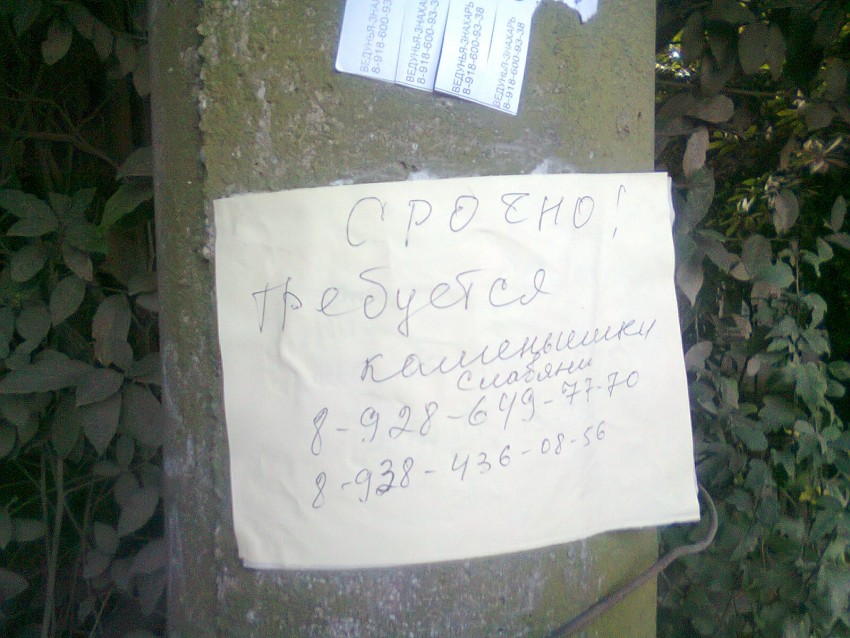 ВЕДУНЬЯ-ЗНАХАРЬ
8-918-600-93
ВЕДУНЬЯ-ЗНАХАРЬ
8-918-600-93-3
ВЕДУНЬЯ-ЗНАХАРЬ
8-918-600-93-38
ВЕДУНЬЯ-ЗНАХАРЬ
8-918-600-93-38
СРОЧНО!
требуется
каменьшики
Славяни
8-928-649-77-70
8-938-436-08-56